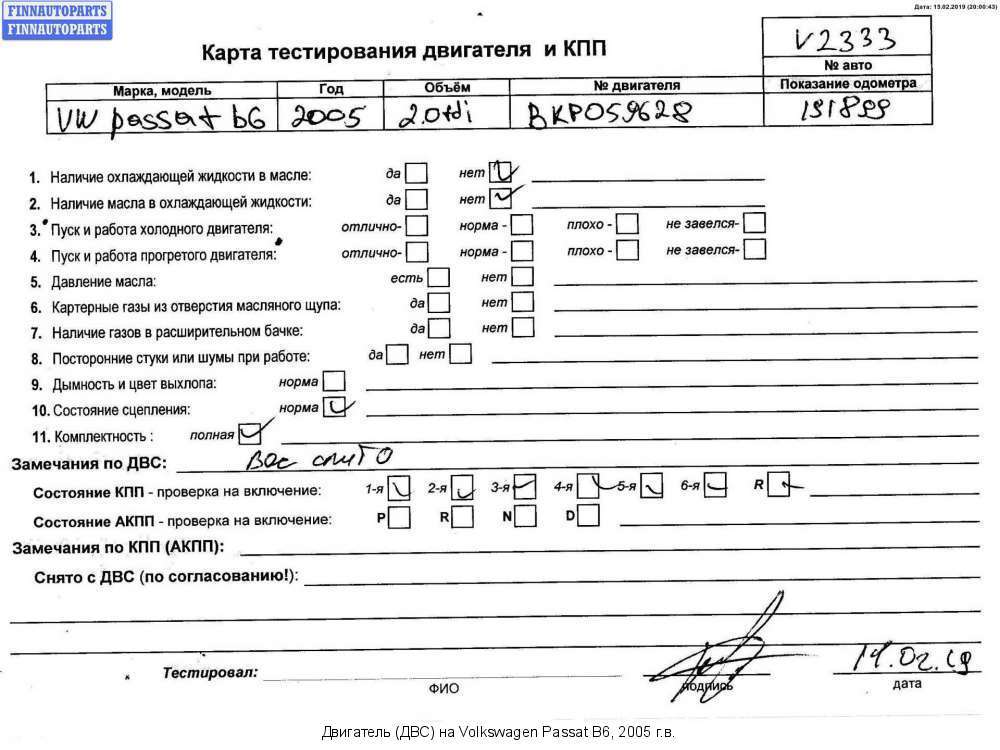 FINNAUTOPARTS
FINNAUTOPARTS
Дата: 15.02.2019 (20:00:43)
Карта тестирования двигателя и КПП
V2333
№ авто
Марка, модель Год Объём № двигателя Показание одометра
VW passat b6 2005 2.0tdi BKP059628 191899
1. Наличие охлаждающей жидкости в масле: да нет
2. Наличие масла в охлаждающей жидкости: да нет
3. Пуск и работа холодного двигателя: отлично- норма - плохо - не завелся-
4. Пуск и работа прогретого двигателя: отлично- норма - плохо - не завелся-
5. Давление масла: есть нет
6. Картерные газы из отверстия масляного щупа: да нет
7. Наличие газов в расширительном бачке: да нет
8. Посторонние стуки или шумы при работе: да нет
9. Дымность и цвет выхлопа: норма
10. Состояние сцепления: норма
11. Комплектность : полная
Замечания по ДВС:
Состояние КПП - проверка на включение: 1-я 2-я 3-я 4-я 5-я 6-я R
Состояние АКПП - проверка на включение: P R N D
Замечания по КПП (АКПП):
Снято с ДВС (по согласованию!):
Тестировал: ФИО подпись дата
14.02.19
Двигатель (ДВС) на Volkswagen Passat B6, 2005 г.в.